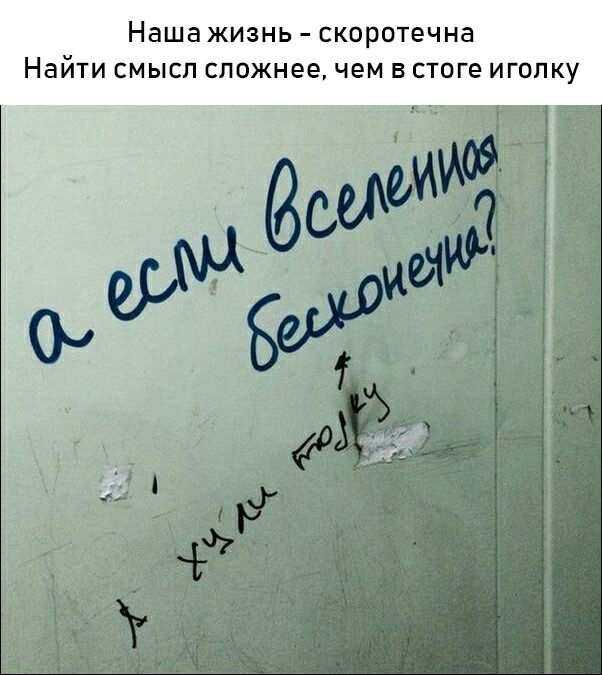 Наша жизнь - скоротечна
Найти смысл сложнее, чем в стоге иголку
а если Вселенная
бесконечна?
а хули толку